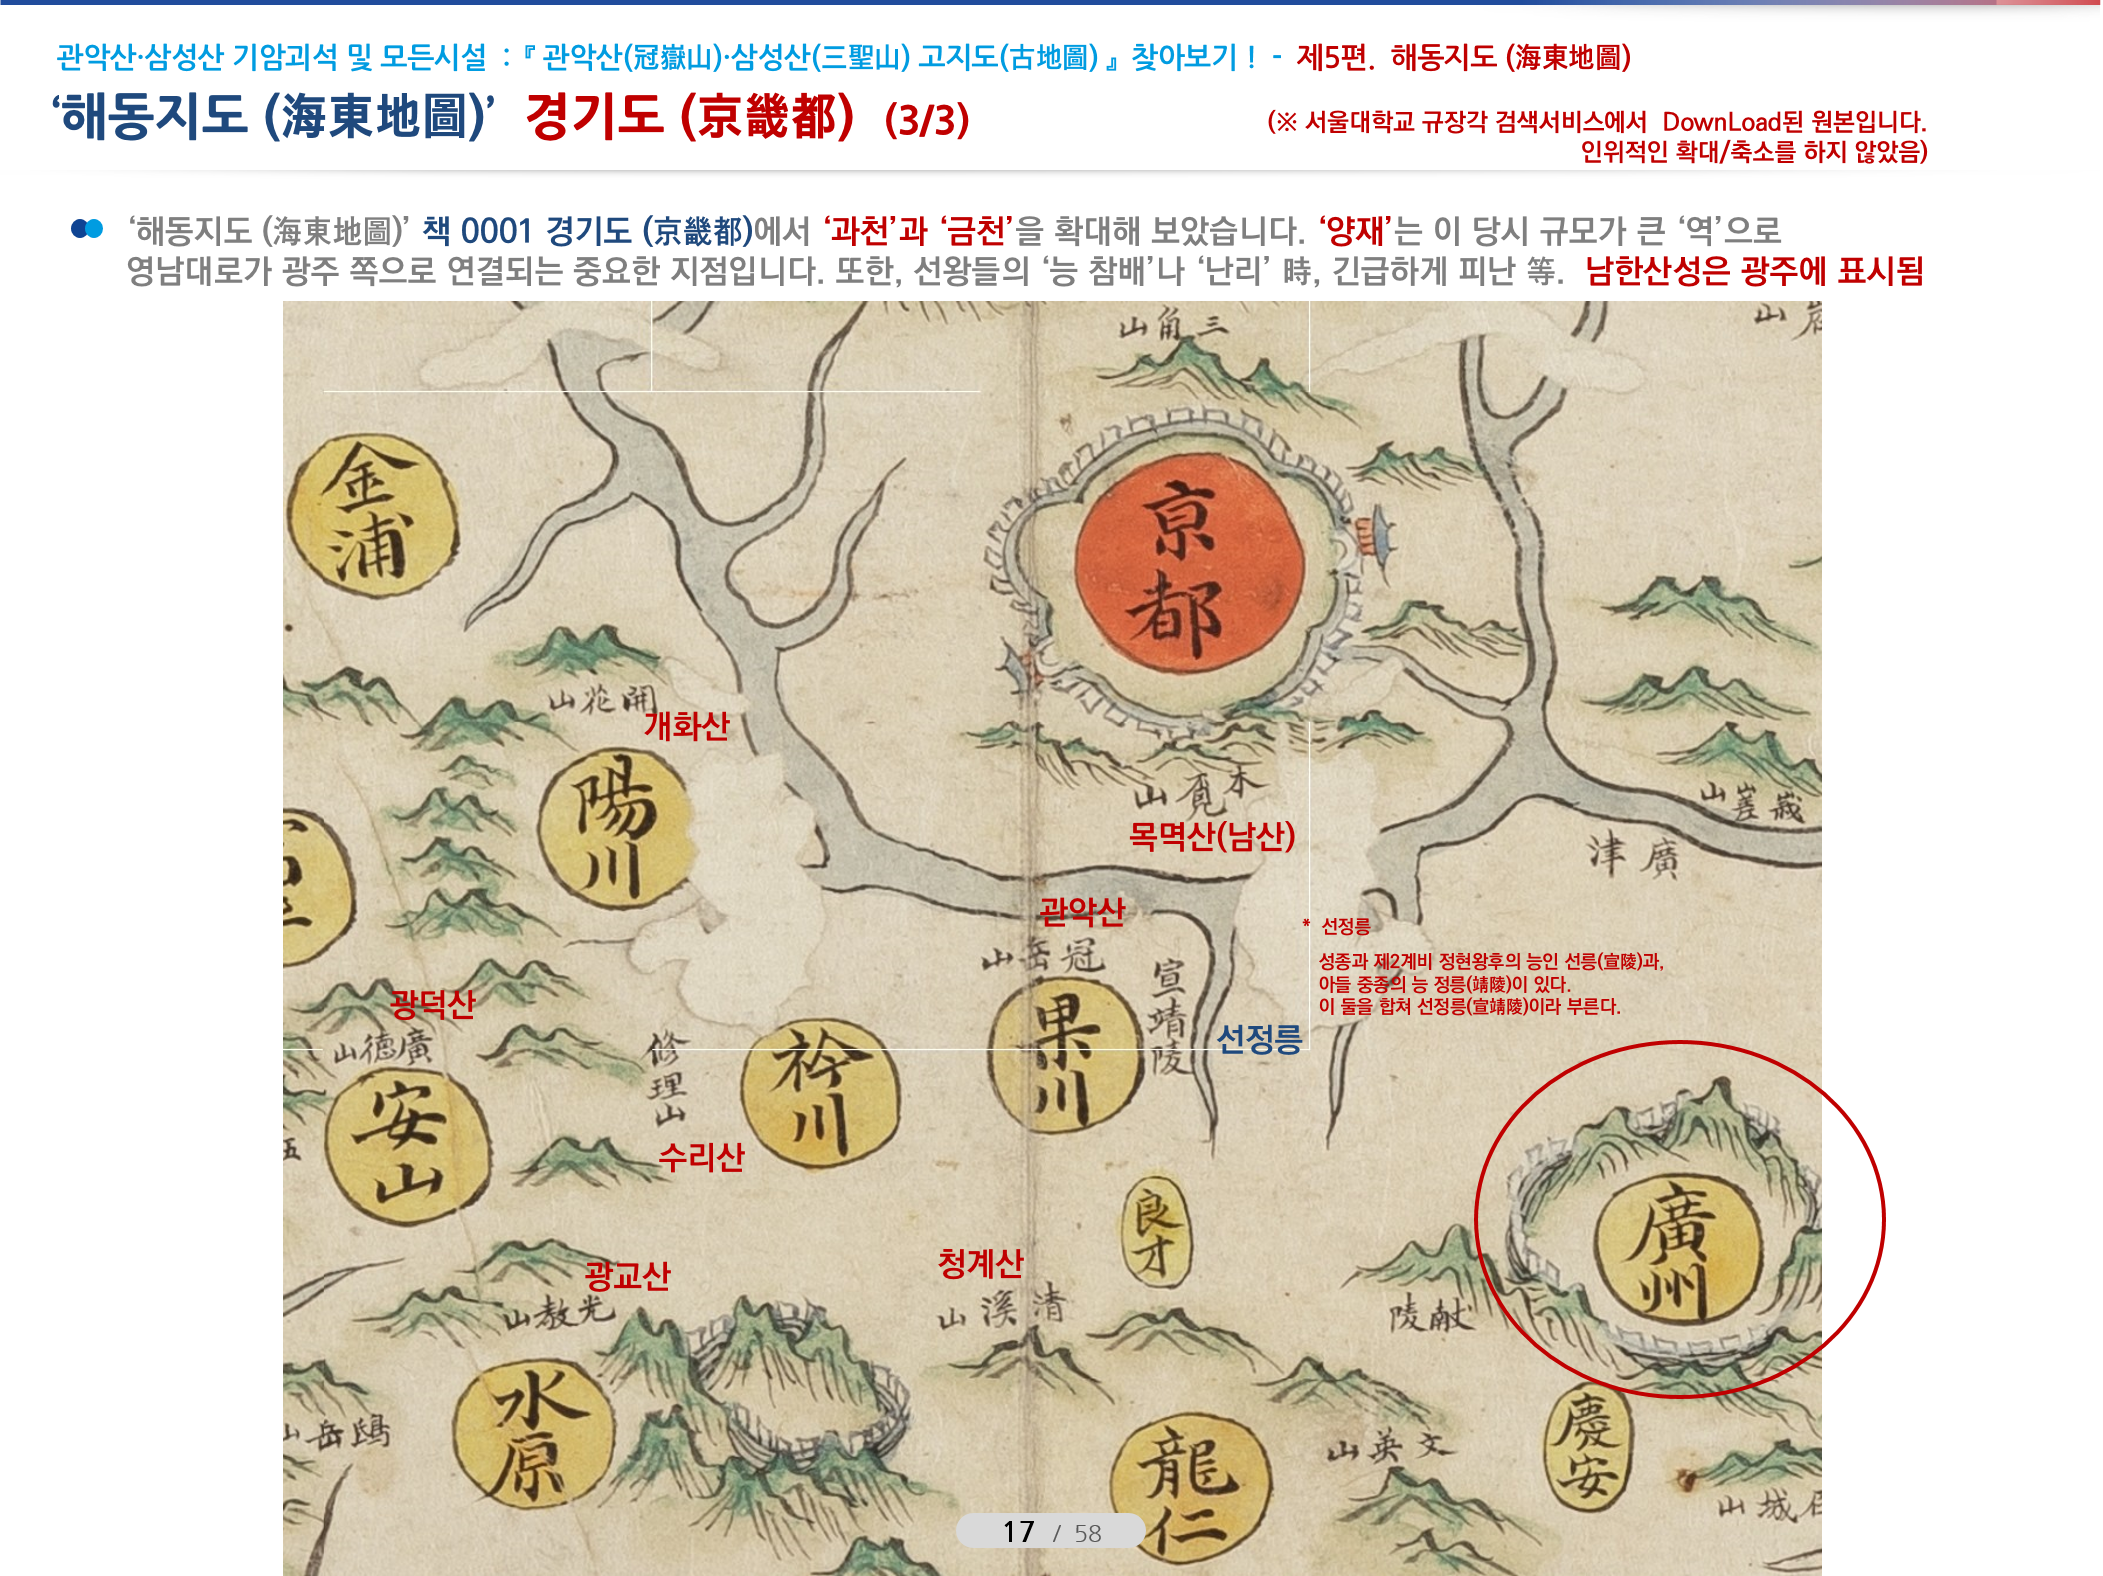 관악산·삼성산 기암괴석 및 모든시설 : 『 관악산(冠嶽山)·삼성산(三聖山) 고지도(古地圖) 』 찾아보기 ! - 제5편. 해동지도 (海東地圖)
‘해동지도 (海東地圖)’ 경기도 (京畿都) (3/3)
(※ 서울대학교 규장각 검색서비스에서 DownLoad된 원본입니다.
인위적인 확대/축소를 하지 않았음)
‘해동지도 (海東地圖)’ 책 0001 경기도 (京畿都)에서 ‘과천’과 ‘금천’을 확대해 보았습니다. ‘양재’는 이 당시 규모가 큰 ‘역’으로
영남대로가 광주 쪽으로 연결되는 중요한 지점입니다. 또한, 선왕들의 ‘능 참배’나 ‘난리’ 時, 긴급하게 피난 等. 남한산성은 광주에 표시됨
山角三
金浦
京都
山花開
개화산
陽川
山覓木
목멱산(남산)
山嵳峩
津廣
관악산
山岳冠
宣靖陵
선정릉
* 선정릉
성종과 제2계비 정현왕후의 능인 선릉(宣陵)과,
아들 중종의 능 정릉(靖陵)이 있다.
이 둘을 합쳐 선정릉(宣靖陵)이라 부른다.
광덕산
山德廣
安山
修理山
수리산
衿川
果川
良才
廣州
광교산
山教光
청계산
山溪清
陵献
水原
山岳鴟
龍仁
山英文
慶安
山城
17 / 58